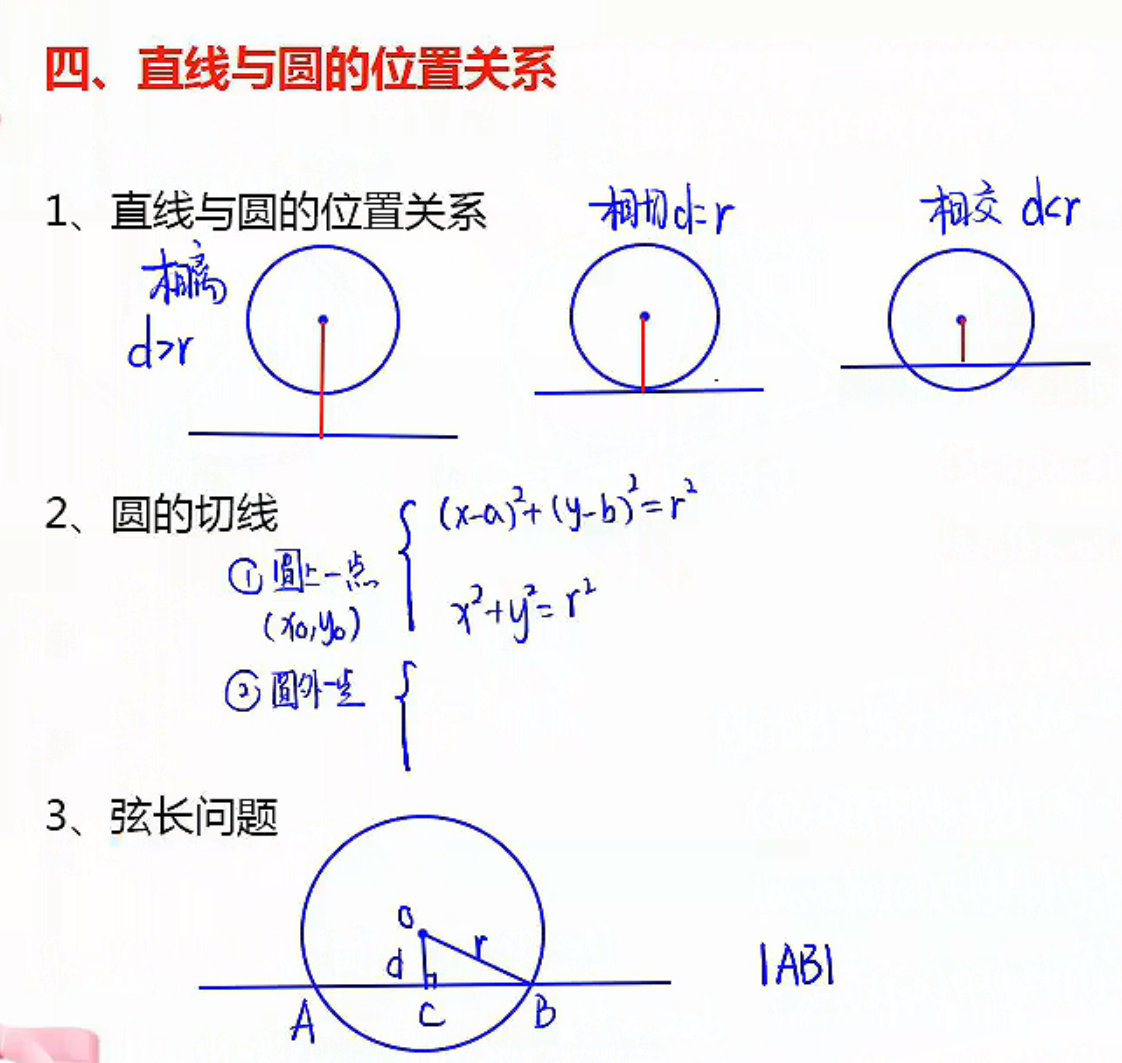 四、直线与圆的位置关系
1、直线与圆的位置关系
相离
d>r
相切d=r
相交 d<r
2、圆的切线
①圆上一点
(x₀,y₀)
(x-a)²+(y-b)²=r²
x²+y²=r²
②圆外一点
3、弦长问题
O
r
d
A
C
B
|AB|